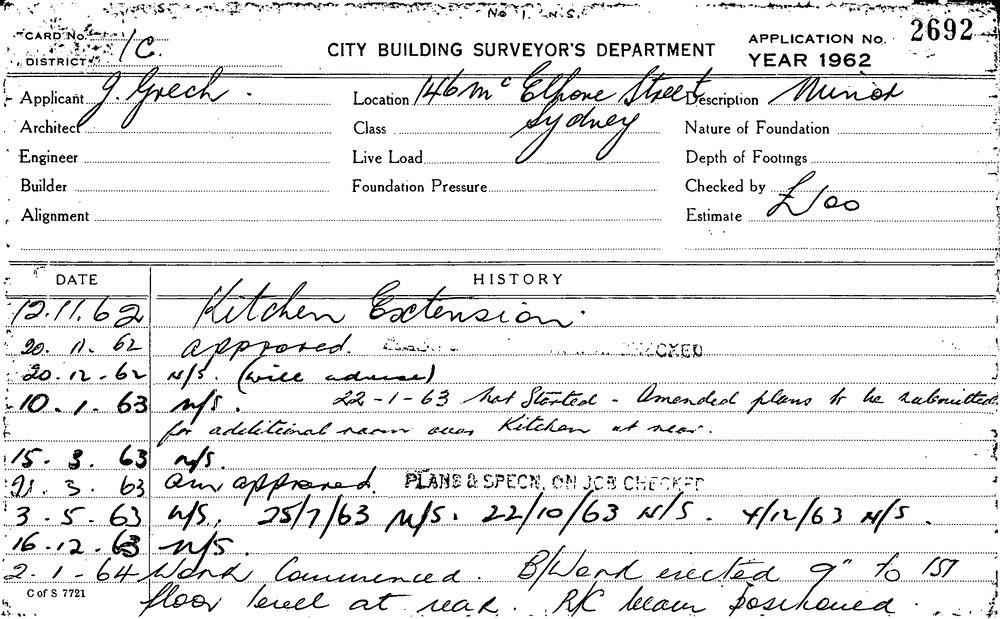 No 1. N.S.
CARD No. 1C. CITY BUILDING SURVEYOR'S DEPARTMENT APPLICATION No. 2692
DISTRICT YEAR 1962
Applicant J. Grech. Location 146 Mc Elhone Street Description Minor
Architect Class Sydney Nature of Foundation
Engineer Live Load Depth of Footings
Builder Foundation Pressure Checked by
Alignment Estimate £100
DATE HISTORY
12.11.62 Kitchen Extension.
20.11.62 approved. CHECKED
20.12.62 N/S. (will advise)
10.1.63 N/S. 22-1-63 Not Started - Amended plans to be submitted
for additional room over Kitchen at rear.
15.3.63 N/S.
21.3.63 am approved. PLANS & SPECN. ON JOB CHECKED
3.5.63 N/S. 25/7/63 N/S. 22/10/63 N/S. 4/12/63 N/S.
16.12.63 N/S.
2-1-64 Work Commenced. B/Work erected 9" to 1ST
C of S 7721 floor level at rear. R/C beam positioned.